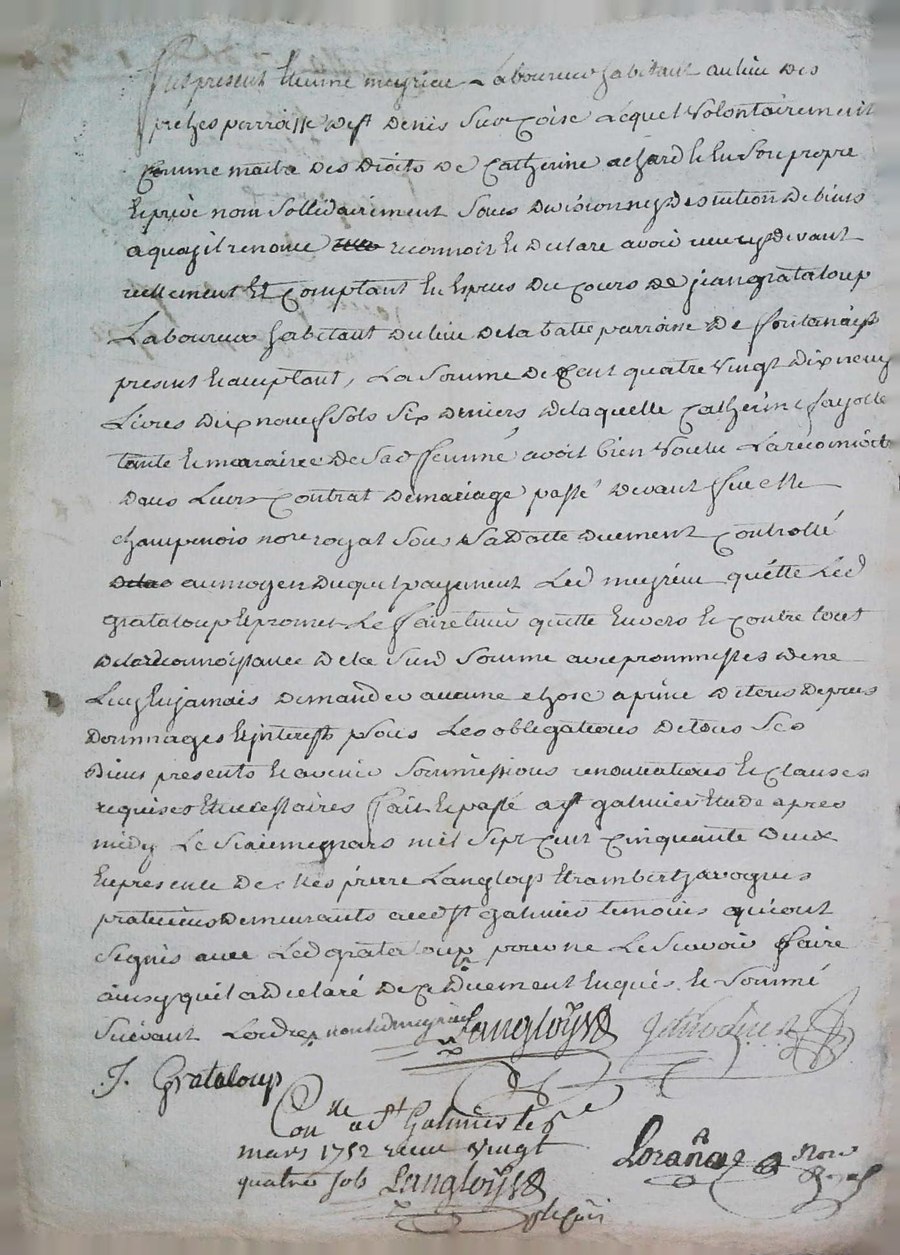 Fut present Etienne meyrieu Laboureur habitant au lieu des
preles parroisse de st Denis Sur Coise Lequel Volontairement
Comme maitre des Droits de Catherine achard et En Son propre
Et privé nom Sollidairement Sous division ny Discution de biens
a quoy il renonce reconnoit et Declare avoir reçu cy devant
reellement Et Comptant En Espèces Du Cours de jean grataloup
Laboureur habitant du lieu De la batie parroisse De fontanais
present Et acceptant, La Somme De Cent quatre Vingt Dix neuf
Livres Dix neuf Sols Six Deniers De laquelle Catherine fayolle
tante Et maraine De Sa femme avoit bien Voulu La reconnoitre
Dans Leurs Contrat De mariage passé Devant feu Me
champenois nore royal Sous Sa Datte Duement Controllé
au moyen Duquel payement Led meyrieu quitte Led
grataloup Et promet Le faire tenir quitte Envers Et Contre tout
De la reconnoissance De la Susd Somme avec promesses De ne
Luy En jamais Demander aucune chose a peine De tous Depens
Dommages Et interests Sous Les obligations De tous Ses
Biens presents Et avenir Soummissions renontiations Et Clauses
requises Et necessaires fait Et passé a st galmier Etude apres
midy Le Sixieme mars mil Sept Cent Cinquante Deux
En presence De Srs pierre Langloys Et rambert javogues
praticiens Demeurants aud st galmier temoins qui ont
Signés avec Led grataloup pour ne Le Savoir faire
ainsy qu'il a Declaré De ce Duement Enquis Et Sommé
Suivant Lordre non led meyrieu Langloys
J. Grataloup
Conlle a st Galmier le 6e
mars 1752 reçu Vingt
quatre Sols Langloys
Loranço Nore
Royal